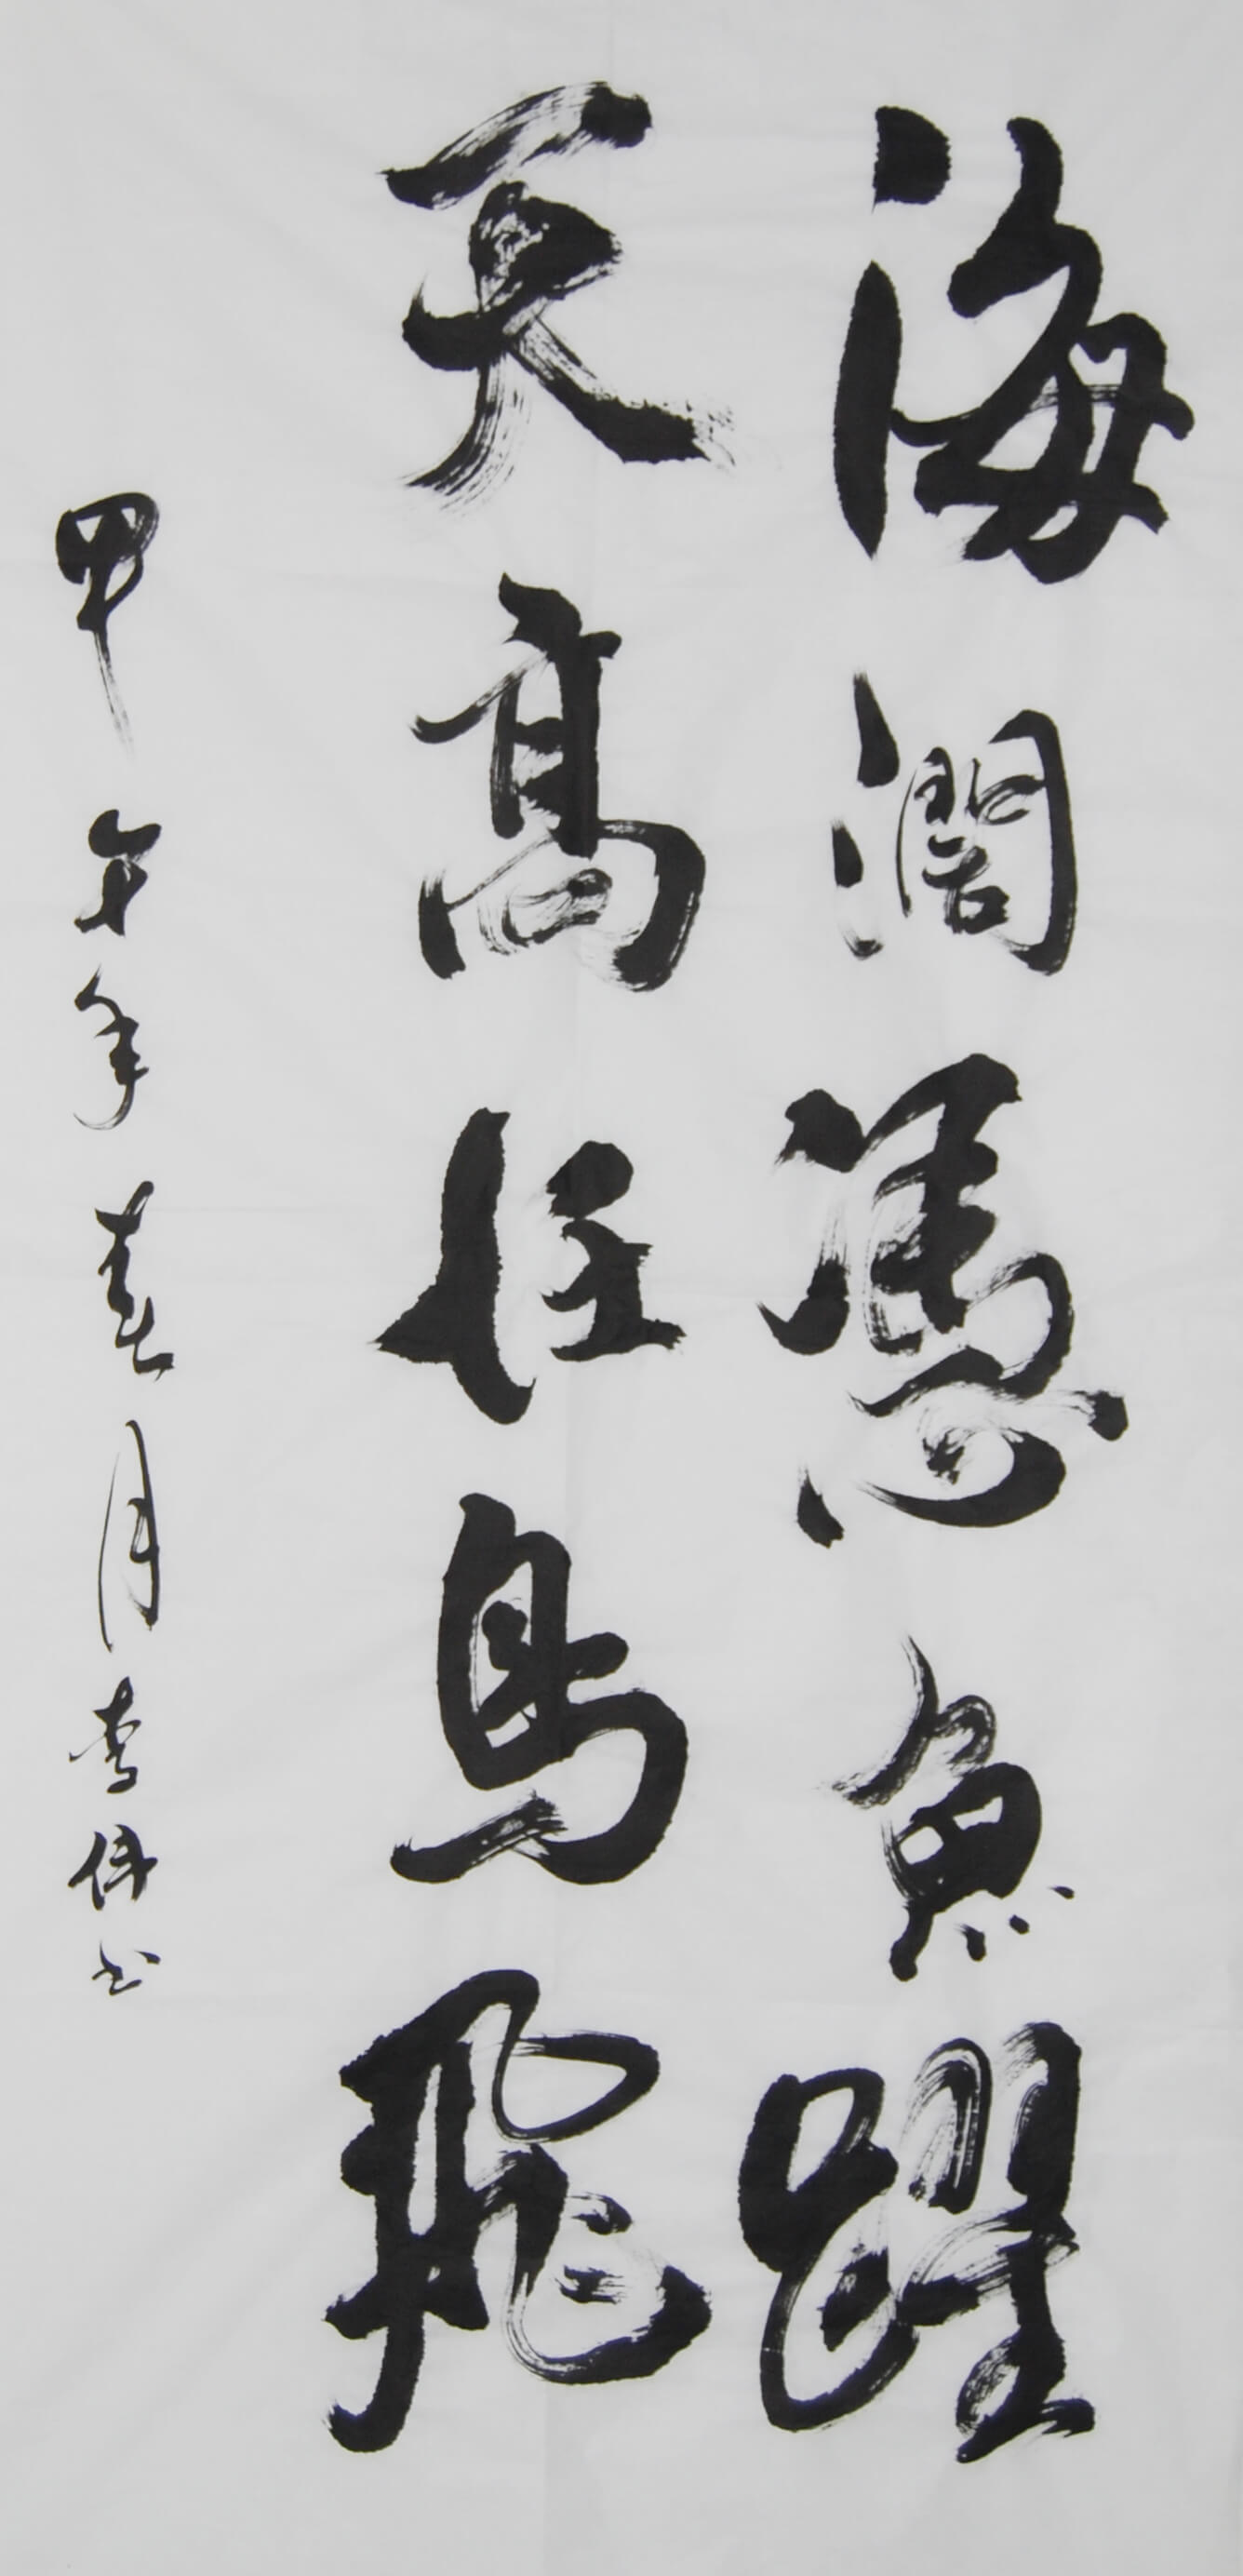 海濶憑魚躍
天高任鳥飛
甲午年春月李偉書